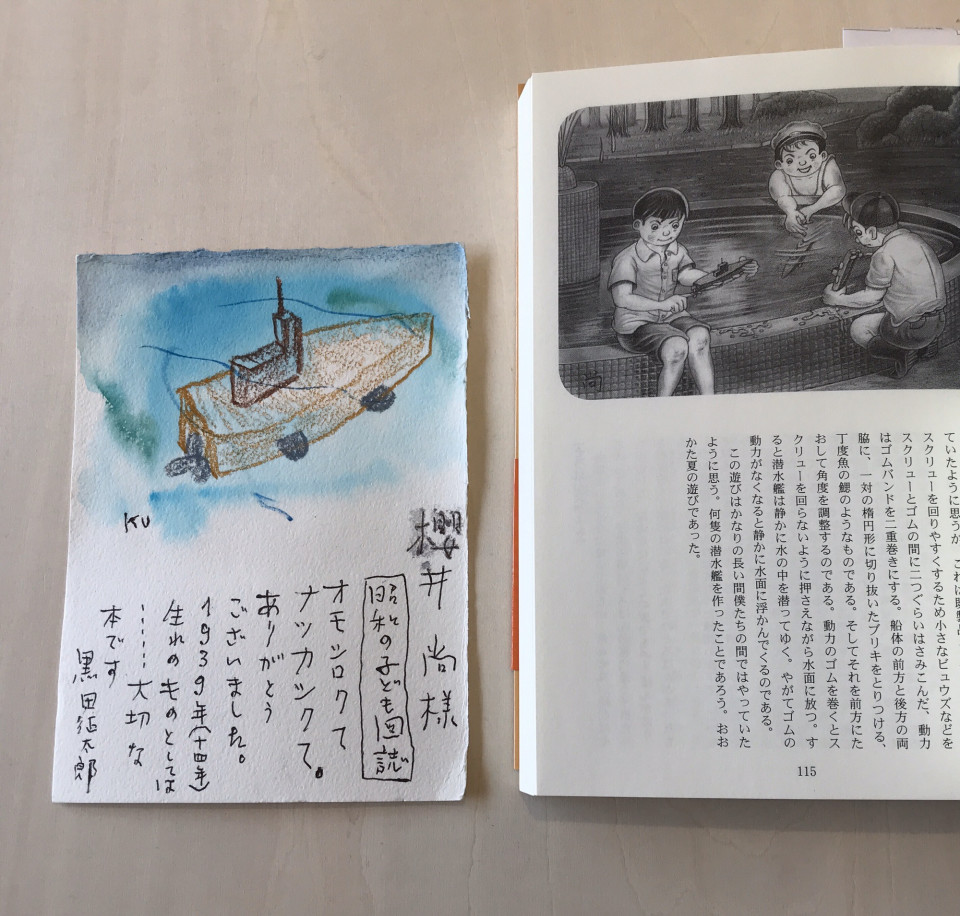 KU
櫻井 尚様
昭和の子ども図誌
オモシロクて
ナツカシクて。
ありがとう
ございました。
1939年(十四年)
生れのものとしては
……大切な
本です
黒田征太郎
尚
ていたように思うが、これは
スクリューを回りやすくするため小さなビュウズなどを
スクリューとゴムの間に二つぐらいはさみこんだ、動力
はゴムバンドを二重巻きにする。船体の前方と後方の両
脇に、一対の楕円形に切り抜いたブリキをとりつける、
丁度魚の鰓のようなものである。そしてそれを前方にた
おして角度を調整するのである。動力のゴムを巻くとス
クリューを回らないように押さえながら水面に放つ。す
ると潜水艦は静かに水の中を潜ってゆく。やがてゴムの
動力がなくなると静かに水面に浮かんでくるのである。
この遊びはかなりの長い間僕たちの間ではやっていた
ように思う。何隻の潜水艦を作ったことであろう。おお
かた夏の遊びであった。
115